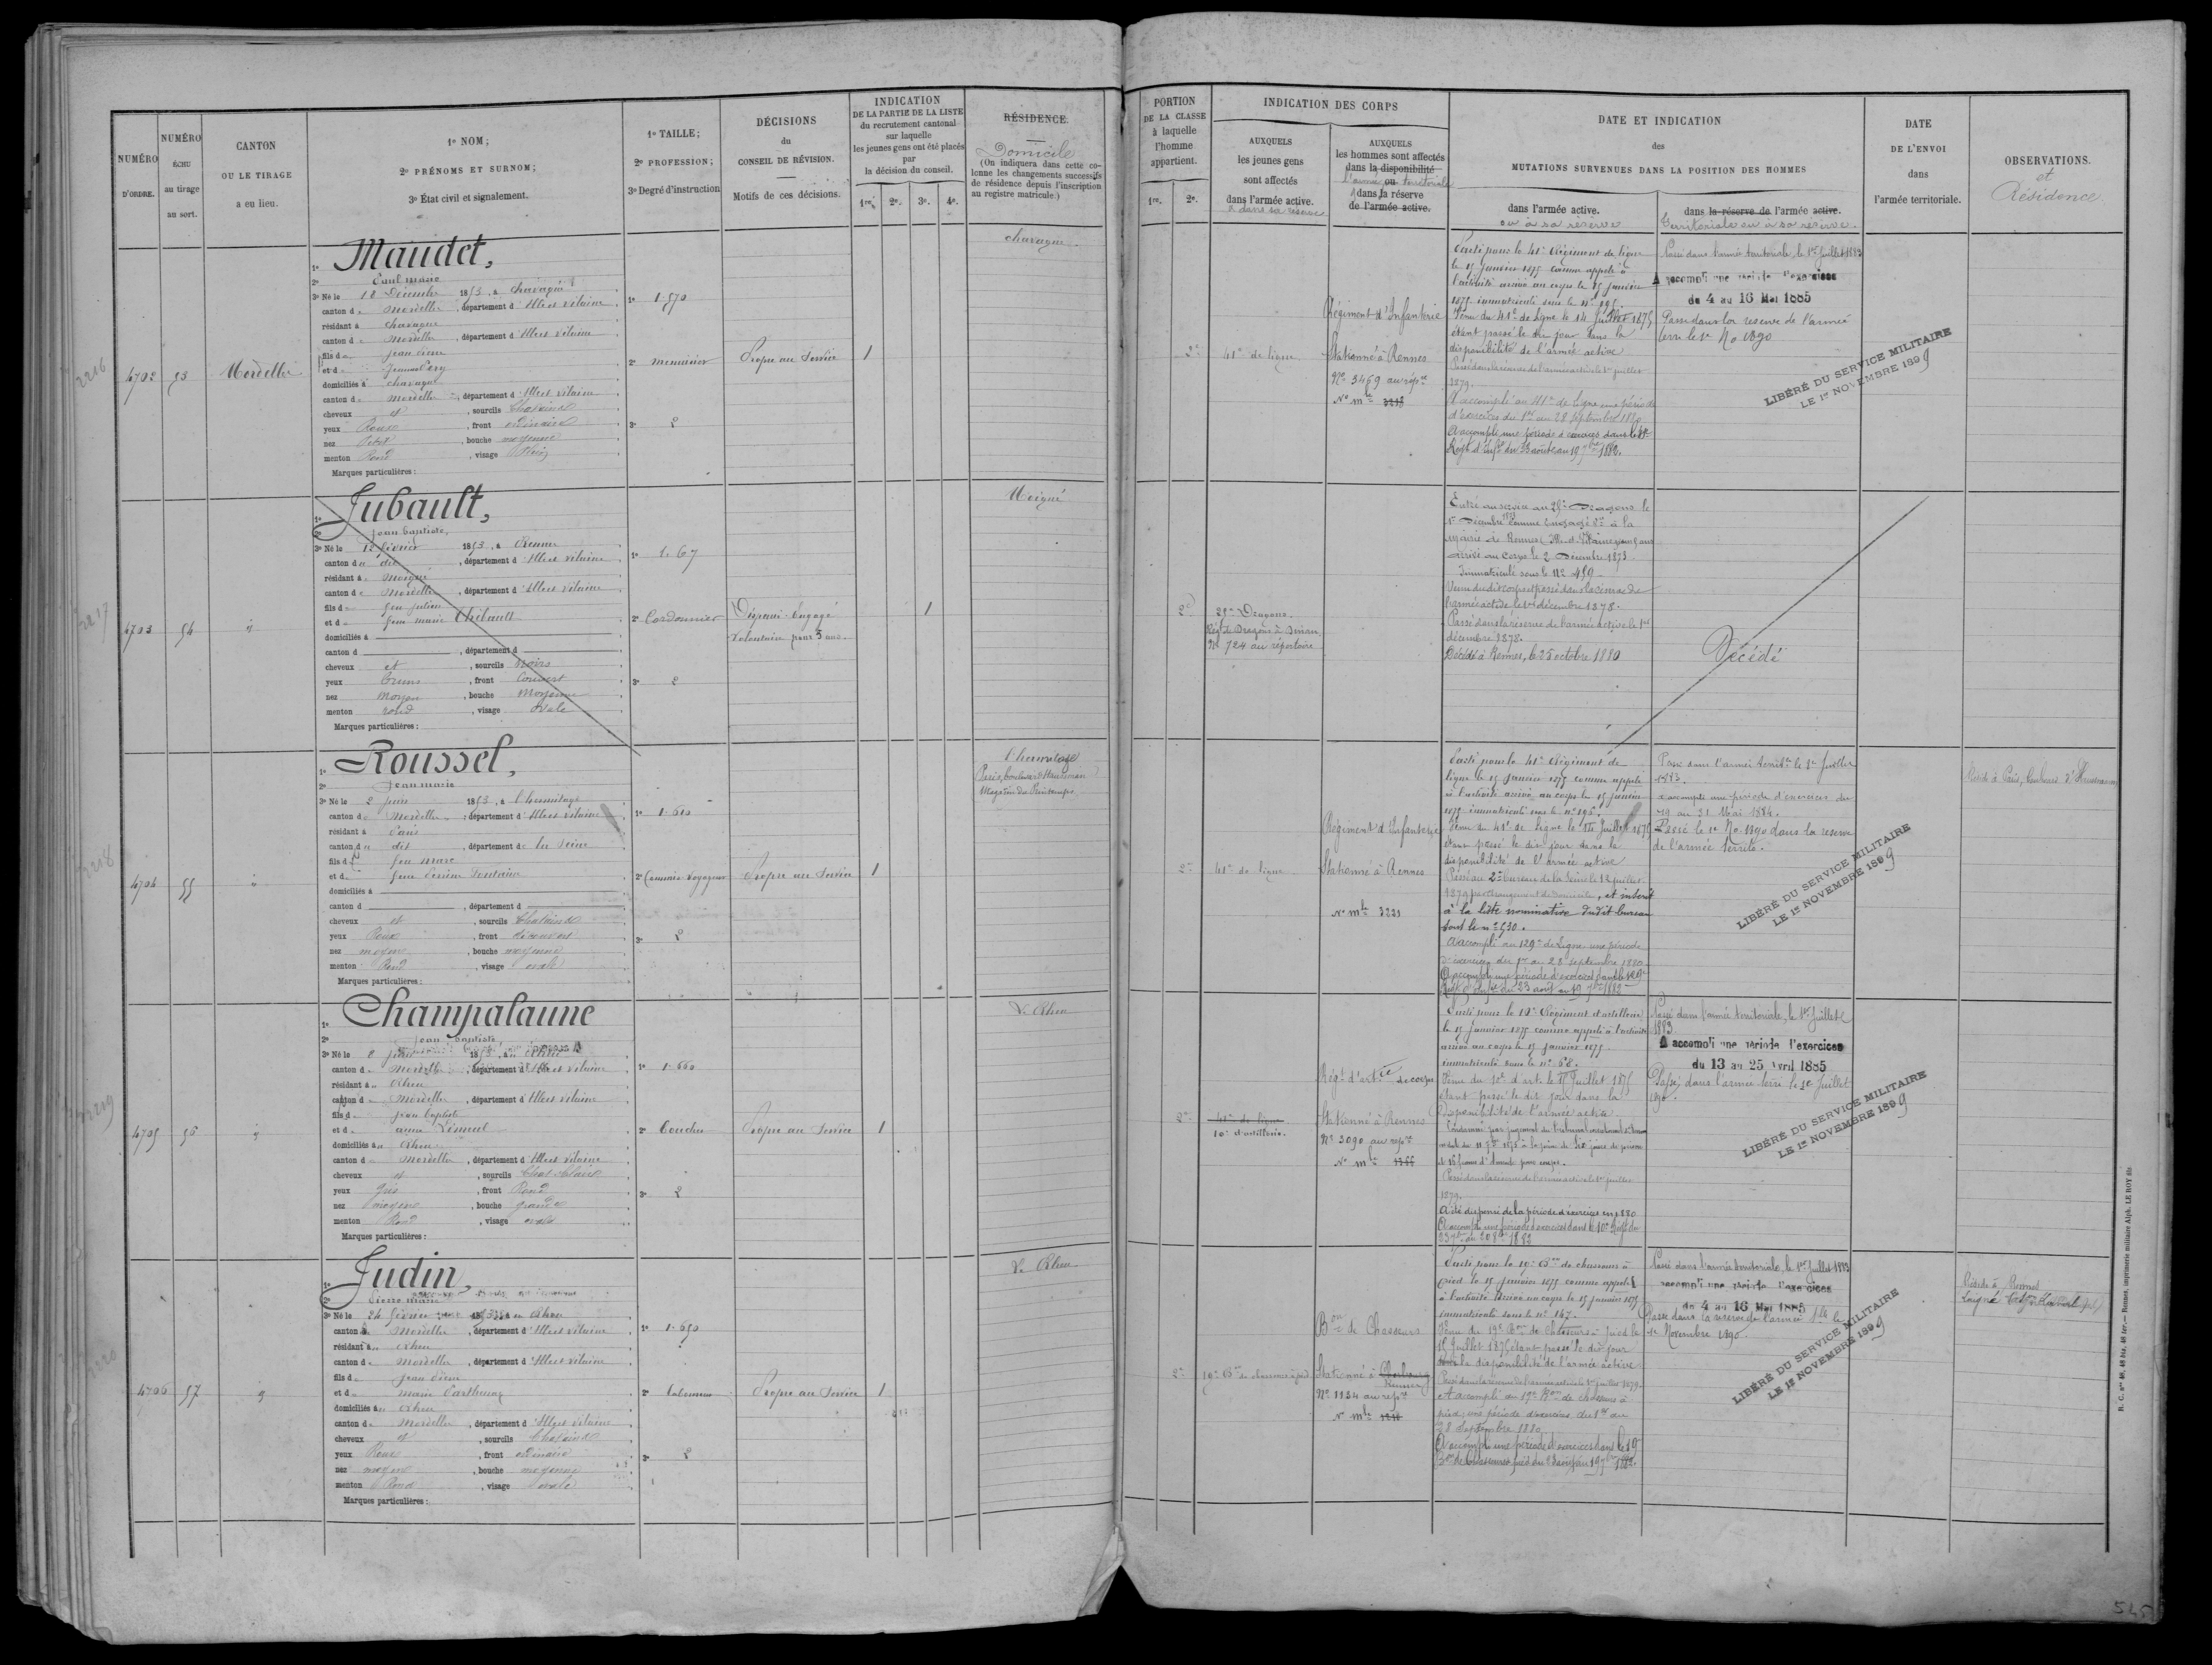 NUMÉRO
D'ORDRE.
NUMÉRO
ÉCHU
au tirage
au sort.
CANTON
OU LE TIRAGE
a eu lieu.
1º NOM;
2º PRÉNOMS ET SURNOM;
3º État civil et signalement.
1º TAILLE;
2º PROFESSION;
3º Degré d'instruction
DÉCISIONS
du
CONSEIL DE RÉVISION.
Motifs de ces décisions.
INDICATION
DE LA PARTIE DE LA LISTE
du recrutement cantonal
sur laquelle
les jeunes gens ont été placés
par
la décision du conseil.
1re. 2e. 3e. 4e.
RÉSIDENCE.
Domicile
(On indiquera dans cette co-
lonne les changements successifs
de résidence depuis l'inscription
au registre matricule.)
PORTION
DE LA CLASSE
à laquelle
l'homme
appartient.
1re. 2e.
INDICATION DES CORPS
AUXQUELS
les jeunes gens
sont affectés
dans l'armée active.
& dans sa réserve
AUXQUELS
les hommes sont affectés
dans la disponibilité
ou
l'armée territoriale
dans la réserve
de l'armée active.
DATE ET INDICATION
des
MUTATIONS SURVENUES DANS LA POSITION DES HOMMES
dans l'armée active.
ou à sa réserve
dans la réserve de l'armée active.
territoriale ou à sa réserve.
DATE
DE L'ENVOI
dans
l'armée territoriale.
OBSERVATIONS.
et
Résidence
2216
4702
53
Mordelles
1º Maudet,
2º Paul marie
3º Né le 18 Décembre 1853, à Chavagne
canton de Mordelles, département d'Ille et Vilaine
résidant à Chavagne
canton de Mordelles, département d'Ille et Vilaine
fils de Jean Pierre
et de
domiciliés à Chavagne
canton de Mordelles, département d'Ille et Vilaine
cheveux et, sourcils Chatains
yeux Roux, front ordinaire
nez Petit, bouche moyenne
menton Rond, visage Plein
Marques particulières :
1º 1.570
2º menuisier
3º 2
Propre au Service
1
Chavagne
2e
41e de ligne
Régiment d'Infanterie
Stationné à Rennes
Nº 3469 au répre
Nº mle 3218
Parti pour le 41e Régiment de ligne
le 15 Janvier 1875 comme appelé à
l'activité arrivé au corps le 15 Janvier
1875 immatriculé sous le nº 195.
Venu du 41e de ligne le 14 Juillet 1875
étant passé le dit jour dans la
disponibilité de l'armée active
Passé dans la réserve de l'armée active le 1er juillet
1879.
A accompli au 41e de ligne une période
d'exercices du 1er au 28 septembre 1880
A accompli une période d'exercices dans le
Régt d'Infie du 23 août au 19 7bre 1882.
Passé dans l'armée territoriale, le 1er Juillet 1883
A accompli une période d'exercices
du 4 au 16 Mai 1885
Passé dans la réserve de l'armée
terrle le 1er No 1890
LIBÉRÉ DU SERVICE MILITAIRE
LE 1er NOVEMBRE 1899
2217
4703
54
1º Jubault,
2º Jean baptiste,
3º Né le 12 février 1853, à Rennes
canton du dit, département d'Ille et Vilaine
résidant à Moigné
canton de Mordelles, département d'Ille et Vilaine
fils de feu julien
et de feue marie Thébault
domiciliés à
canton d, département d
cheveux et, sourcils Noirs
yeux bruns, front Couvert
nez moyen, bouche Moyenne
menton rond, visage Ovale
Marques particulières :
1º 1.67
2º Cordonnier
3º 2
Dispensé. Engagé
volontaire pour 5 ans
1
Moigné
2e
Dragons
Régt de Dragons à Dinan
Nº 724 au répertoire
Entré au service au Dragons le
1er Décembre 1873 comme Engagé Vre à la
mairie de Rennes
arrivé au Corps le 2 Décembre 1873
Immatriculé sous le Nº 459
Venu du dit corps et passé dans la réserve de
l'armée active le 1er décembre 1878.
Passé dans la réserve de l'armée active le 1er
décembre 1878.
Décédé à Rennes, le 25 octobre 1880
Décédé
2218
4704
55
1º Roussel,
2º Jean marie
3º Né le 2 juin 1853, à l'hermitage
canton de Mordelles, département d'Ille et Vilaine
résidant à Paris
canton du dit, département de la Seine
fils de feu marc
et de feue Perrine Fontaine
domiciliés à
canton d, département d
cheveux et, sourcils Chatains
yeux Roux, front découvert
nez moyen, bouche moyenne
menton Rond, visage ovale
Marques particulières :
1º 1.610
2º Commis Voyageur
3º 2
Propre au Service
1
l'hermitage
Paris, boulevard Haussmann
Magasin du Printemps
2e
41e de ligne
Régiment d'Infanterie
Stationné à Rennes
Nº mle 3221
Parti pour le 41e Régiment de
ligne le 15 Janvier 1875 comme appelé
à l'activité arrivé au corps le 15 janvier
1875 immatriculé sous le nº 196.
Venu du 41e de ligne le Juillet 1875
étant passé le dit jour dans la
disponibilité de l'armée active
Passé au 2e bureau de la Seine le 12 juillet
1879 par changement de domicile, et inscrit
à la liste nominative dudit bureau
sous le nº 530.
A accompli au 129e de Ligne une période
d'exercices du 1er au 28 septembre 1880
A accompli une période d'exercices dans le 129e
Régt d'Infie du 23 août au 19 7bre 1882
Passé dans l'armée territle le 1er Juillet
1883.
A accompli une période d'exercices du
19 au 31 Mai 1884.
Passé le 1er No 1890 dans la réserve
de l'armée territe.
LIBÉRÉ DU SERVICE MILITAIRE
LE 1er NOVEMBRE 1899
Réside à Paris, boulevard d'Haussmann
2219
4705
56
1º Champalaune
2º Jean Baptiste,
3º Né le 8 juin 1853, à Rheu
canton de Mordelles, département d'Ille et Vilaine
résidant au Rheu
canton de Mordelles, département d'Ille et Vilaine
fils de Jean baptiste
et de anne
domiciliés au Rheu
canton de Mordelles, département d'Ille et Vilaine
cheveux et, sourcils Chat. clairs
yeux gris, front Rond
nez moyen, bouche grande
menton Rond, visage ovale
Marques particulières :
1º 1.660
2º boucher
3º 2
Propre au Service
1
Le Rheu
2e
41e de ligne
10e d'artillerie.
Régt d'artrie de corps
Stationné à Rennes
Nº 3090 au repre
Nº mle
Parti pour le 10e Régiment d'artillerie
le 15 Janvier 1875 comme appelé à l'activité
arrivé au corps le 15 Janvier 1875
immatriculé sous le nº 68.
Venu du 10e d'art. le 15 Juillet 1875
étant passé le dit jour dans la
disponibilité de l'armée active
Condamné par jugement du tribunal
à la peine de Six jours de prison
et 16 francs d'amende pour coups.
Passé dans la réserve de l'armée active le 1er juillet
1879.
A été dispensé de la période d'exercices en 1880
A accompli une période d'exercices dans le 10e Régt du
Passé dans l'armée territoriale, le 1er Juillet
1883
A accompli une période d'exercices
du 13 au 25 Avril 1885
Passé dans l'armée terrle le 1er Juillet
1890.
LIBÉRÉ DU SERVICE MILITAIRE
LE 1er NOVEMBRE 1899
2220
4706
57
1º Judin,
2º Pierre marie
3º Né le 24 février 1853, au Rheu
canton de Mordelles, département d'Ille et Vilaine
résidant au Rheu
canton de Mordelles, département d'Ille et Vilaine
fils de Jean Pierre
et de marie Parthenay
domiciliés au Rheu
canton de Mordelles, département d'Ille et Vilaine
cheveux et, sourcils Chatains
yeux Roux, front ordinaire
nez moyen, bouche moyenne
menton Rond, visage ovale
Marques particulières :
1º 1.650
2º
3º 2
Propre au Service
1
Le Rheu
2e
19e Bon de chasseurs à pied
Bon de Chasseurs
Stationné à Cherbourg
Rennes
Nº 1134 au repre
Nº mle
Parti pour le 19e Bon de chasseurs à
pied le 15 janvier 1875 comme appelé
à l'activité arrivé au corps le 15 janvier 1875
immatriculé sous le nº 147.
Venu du 19e Bon de chasseurs à pied le
15 Juillet 1875 étant passé le dit jour
dans la disponibilité de l'armée active
Passé dans la réserve de l'armée active le 1er juillet 1879.
A accompli au 19e Bon de chasseurs à
pied, une période d'exercices du 1er au
28 Septembre 1880
A accompli une période d'exercices dans le 19e
Bon de Chasseurs à pied du 23 août au 19 7bre 1882.
Passé dans l'armée territoriale, le 1er Juillet 1883
A accompli une période d'exercices
du 4 au 16 Mai 1885
Passé dans la réserve de l'armée tle le
1er Novembre 1890.
LIBÉRÉ DU SERVICE MILITAIRE
LE 1er NOVEMBRE 1899
Réside à Rennes
R. C. nos 46, 48 bis, 48 ter. — Rennes, imprimerie militaire Alph. LE ROY fils
545